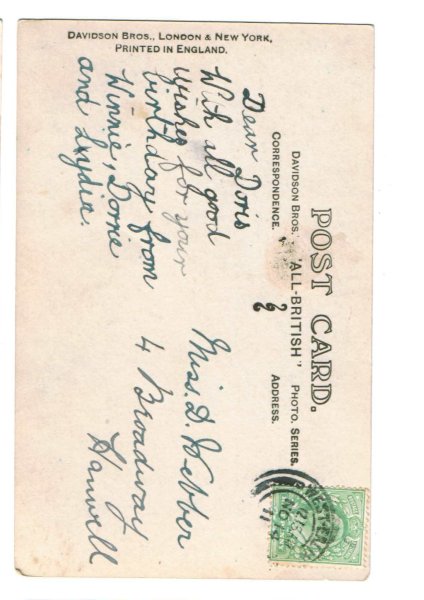 POST CARD.
DAVIDSON BROS.' "ALL-BRITISH" PHOTO. SERIES.
CORRESPONDENCE.
ADDRESS.
Dear Doris
With all good
wishes for your
birthday from
Winnie, Dorrie
and Lydia.
Miss. D. Webber
4 Broadway
Hanwell
DAVIDSON BROS., LONDON & NEW YORK,
PRINTED IN ENGLAND.